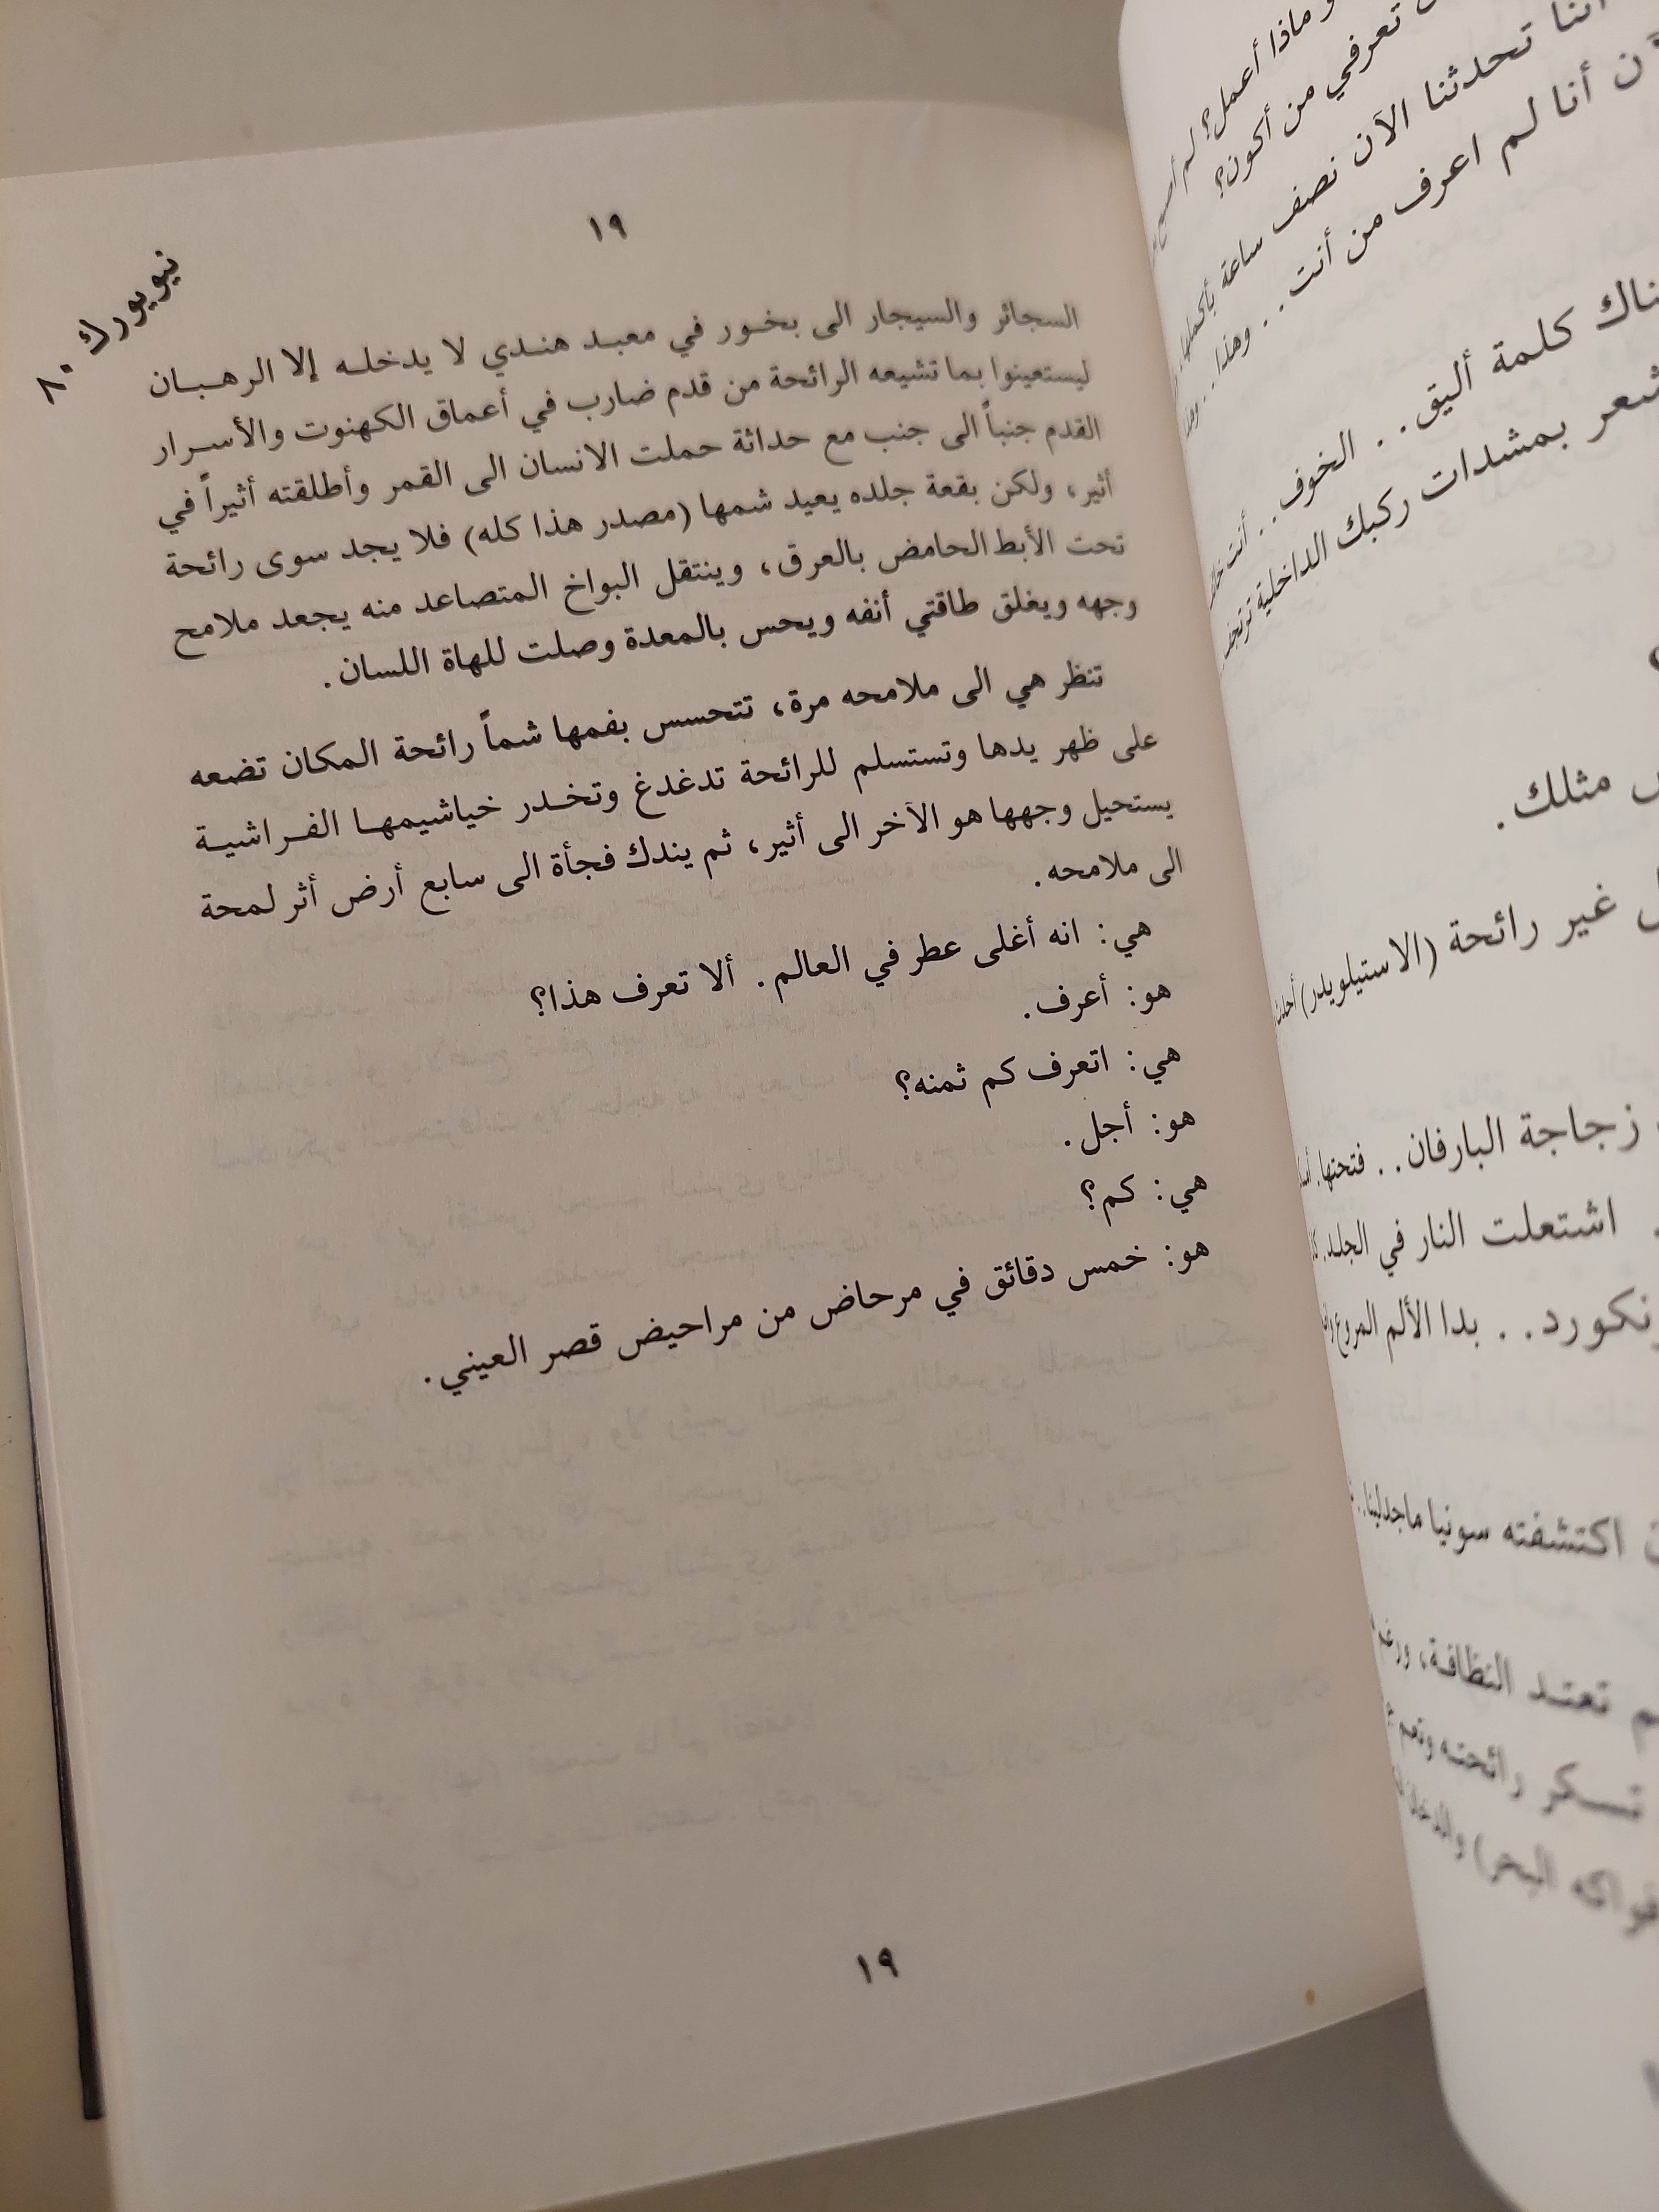 و ماذا أعمل؟ لم
تعرفي من أكون؟
تحدثنا الآن نصف ساعة بأكملها
أنا لم اعرف من أنت . . وهذا . .
كلمة أليق . . الخوف . . أنت
بمشدات ركبك الداخلية ترتجف
مثلك .
غير رائحة (الاستيلويدر)
زجاجة البارفان . . فتحتها .
اشتعلت النار في الجلد .
بدا الألم المروع
اكتشفته سونيا ماجدلينا . .
تعتد النظافة، ورغم
تسكر رائحته
البحر)
نيويورك ٨٠
١٩
السجائر والسيجار الى بخور في معبد هندي لا يدخله إلا الرهبان
ليستعينوا بما تشيعه الرائحة من قدم ضارب في أعماق الكهنوت والأسرار
القدم جنباً الى جنب مع حداثة حملت الانسان الى القمر وأطلقته أثيراً في
أثير، ولكن بقعة جلده يعيد شمها (مصدر هذا كله) فلا يجد سوى رائحة
تحت الأبط الحامض بالعرق، وينتقل البواخ المتصاعد منه يجعد ملامح
وجهه ويغلق طاقتي أنفه ويحس بالمعدة وصلت للهاة اللسان .
تنظر هي الى ملامحه مرة، تتحسس بفمها شماً رائحة المكان تضعه
على ظهر يدها وتستسلم للرائحة تدغدغ وتخدر خياشيمها الفراشية
يستحيل وجهها هو الآخر الى أثير، ثم يندك فجأة الى سابع أرض أثر لمحة
الى ملامحه .
هي: انه أغلى عطر في العالم . ألا تعرف هذا؟
هو: أعرف .
هي: اتعرف كم ثمنه؟
هو: أجل .
هي: كم؟
هو: خمس دقائق في مرحاض من مراحيض قصر العيني .
١٩